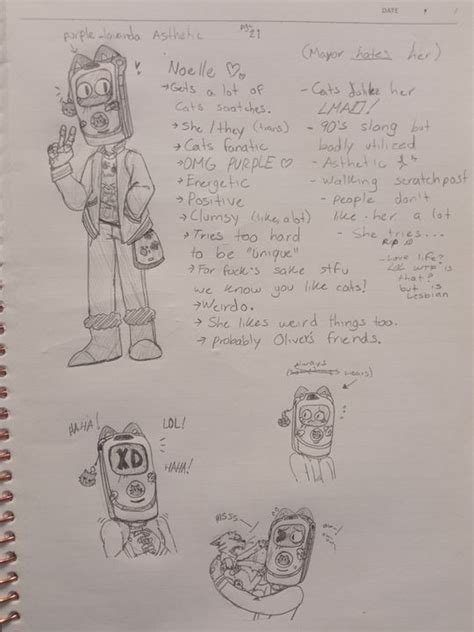 DATE
purple-lavanda Asthetic
21
Noelle ♡
(Mayor hates her)
→ Gets a lot of
Cats scratches.
→ She/they (trans)
→ Cats fanatic
→ OMG PURPLE ♡
→ Energetic
→ Positive
→ Clumsy (like, alot)
→ Tries too hard
to be "unique"
→ For fuck's sake stfu
we know you like cats!
→ Weirdo.
→ She likes weird things too.
→ probably Oliver's friends.
- Cats dislike her
LMAO!
- 90's slang but
badly utilized
- Asthetic
- Walking scratchpost
- people don't
like her a lot
- She tries...
RIP
- Love life?
LOL WTF is
that?
but is
Lesbian
always
wears)
HAHA!
LOL!
XD
HAHA!
HISSS